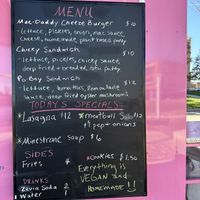 MENU
Mac-Daddy Cheeze Burger $10
- lettuce, pickles, onion, mac sauce,
cheese, homemade, plant based patty
Chicky Sandwich $10
- lettuce, pickles, chicky sauce,
deep fried + breaded, tofu patty
Po-Boy Sandwich $12
- lettuce, tomatoes, remoulade
sauce, deep fried oyster mushrooms
TODAY'S SPECIALS:
*Lasagna $12 *meatball Sub $12
*Minestrone Soup $6
SIDES
Fries
*COOKIES $2.50
Everything is
VEGAN and
HOMEMADE !!
DRINKS
Zevia Soda 2
Water